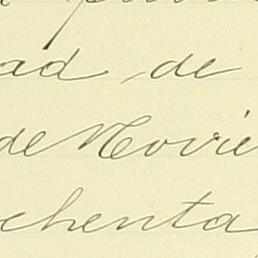 ad, de
de Novie
chenta